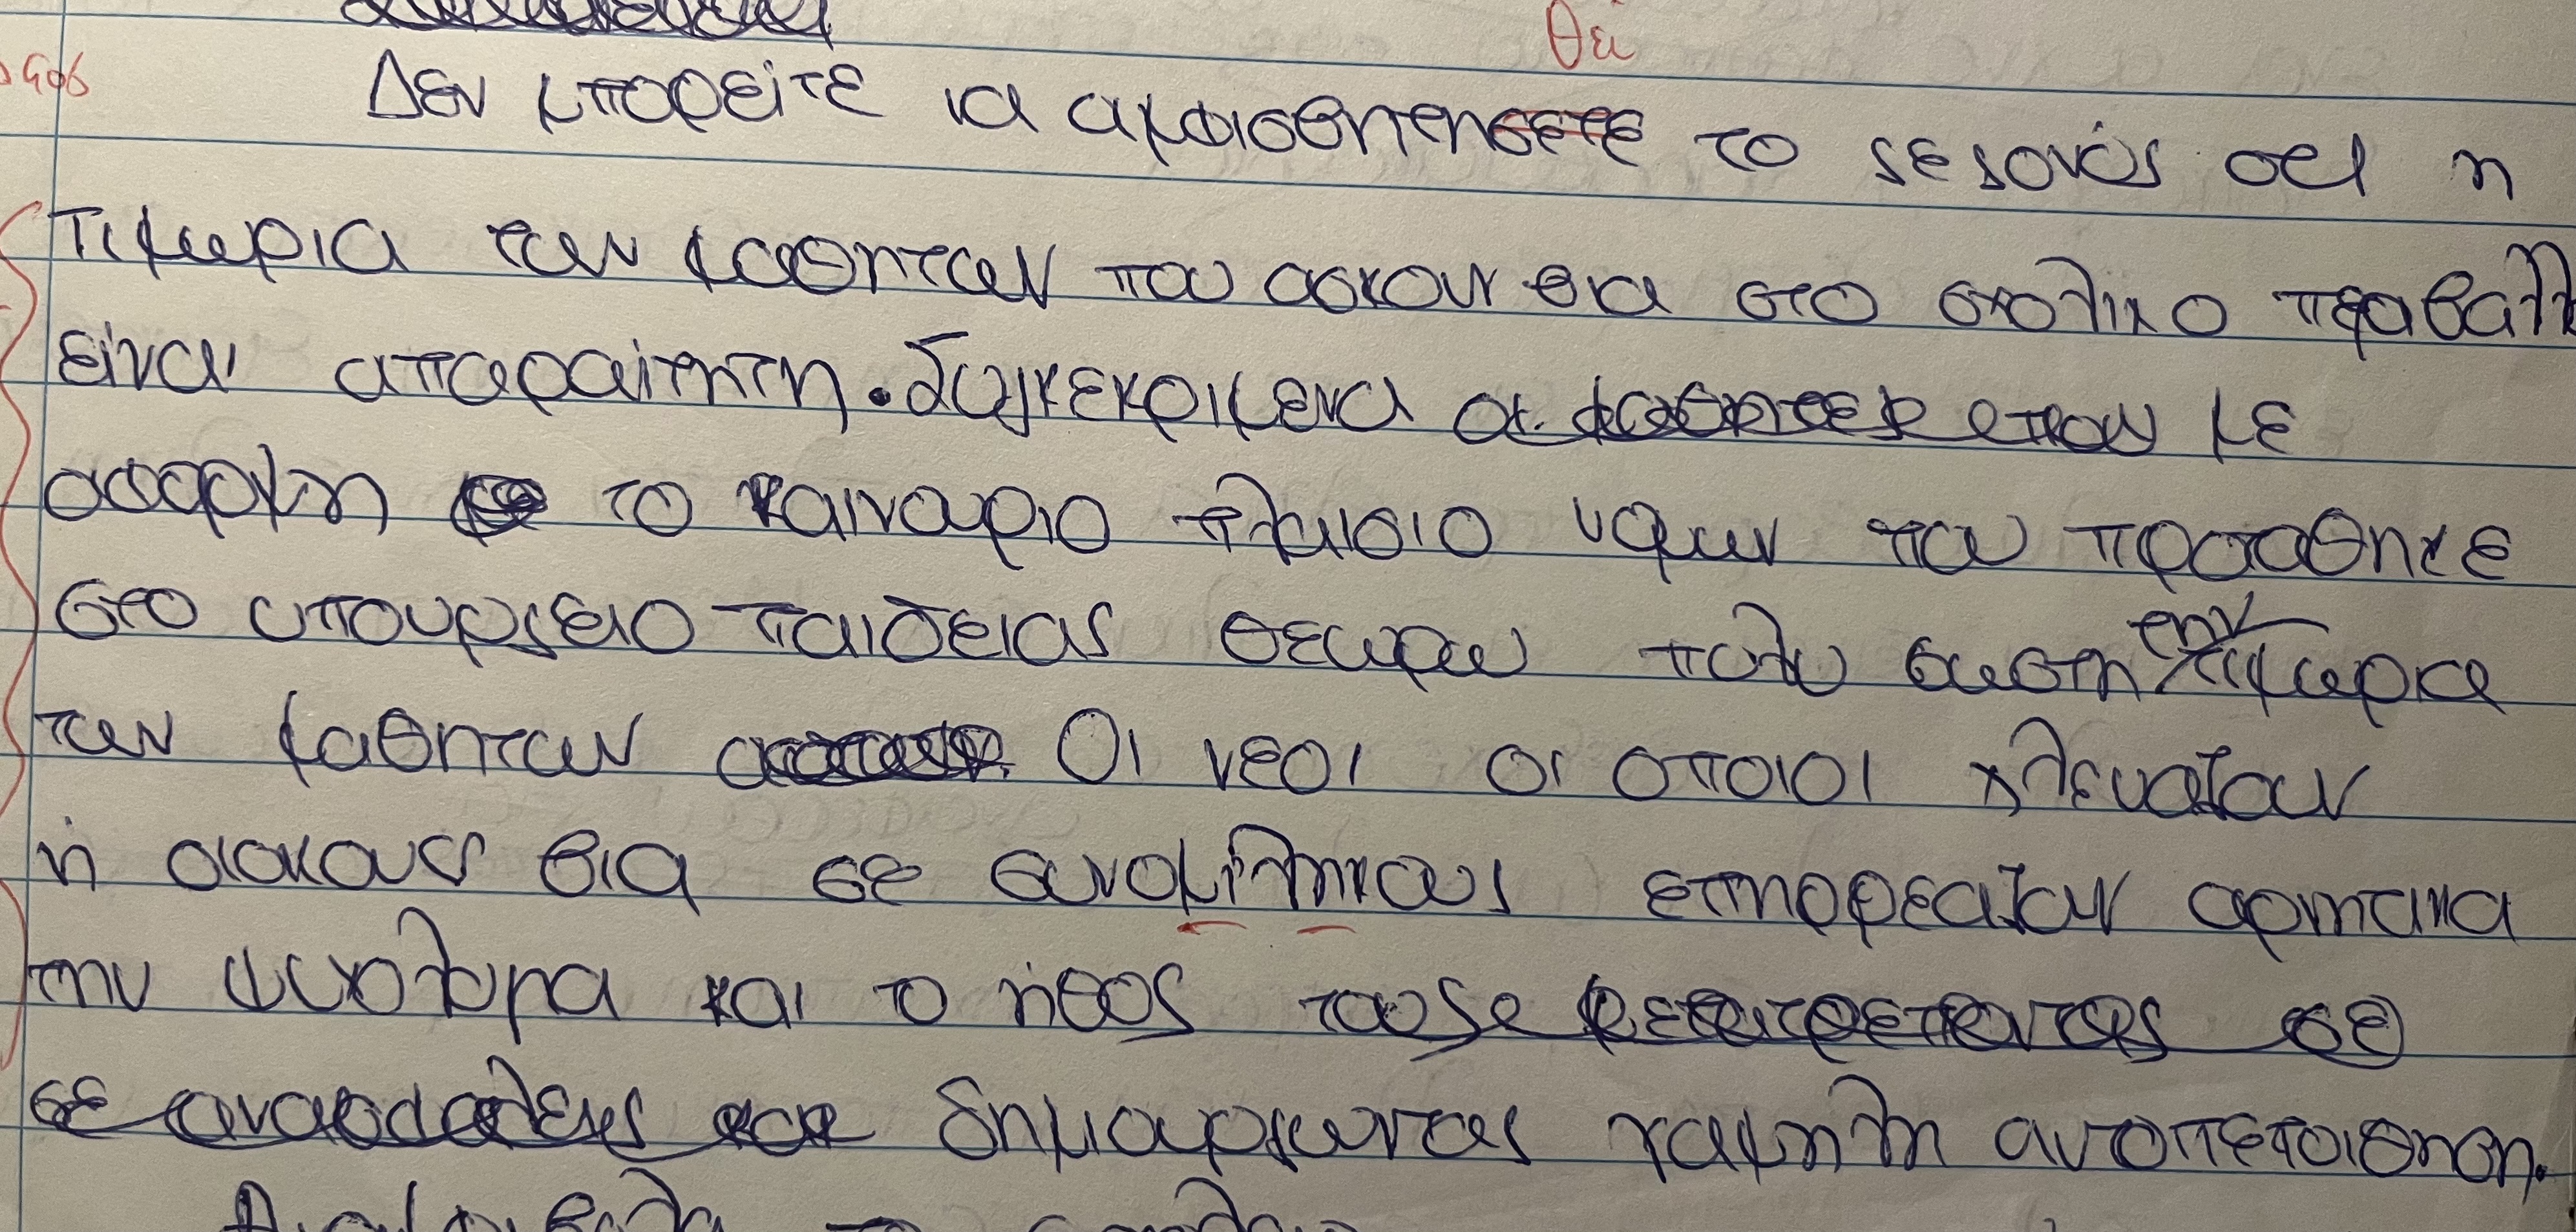 θεί
Δεν μπορείτε να αμφισθητησετε το γεγονός οτι η
τιμωρια των μαθητων που ασκουν βια στο σχολικο
είναι απαραίτητη. Συγκεκριμενα με
αφορμη το καινουριο πλαισιο νομων που προσταθηκε
στο υπουργειο παιδειας θεωρω πολυ σωστη την τιμωρια
των μαθητων Οι νεοι οι οποιοι χλευαζουν
ή ασκουν βια σε συνομίληκους επηρρεαζουν αρνητικα
την ψυχολογια και το ήθος τους
δημιουργωντας χαμηλη αυτοπεποιθηση.